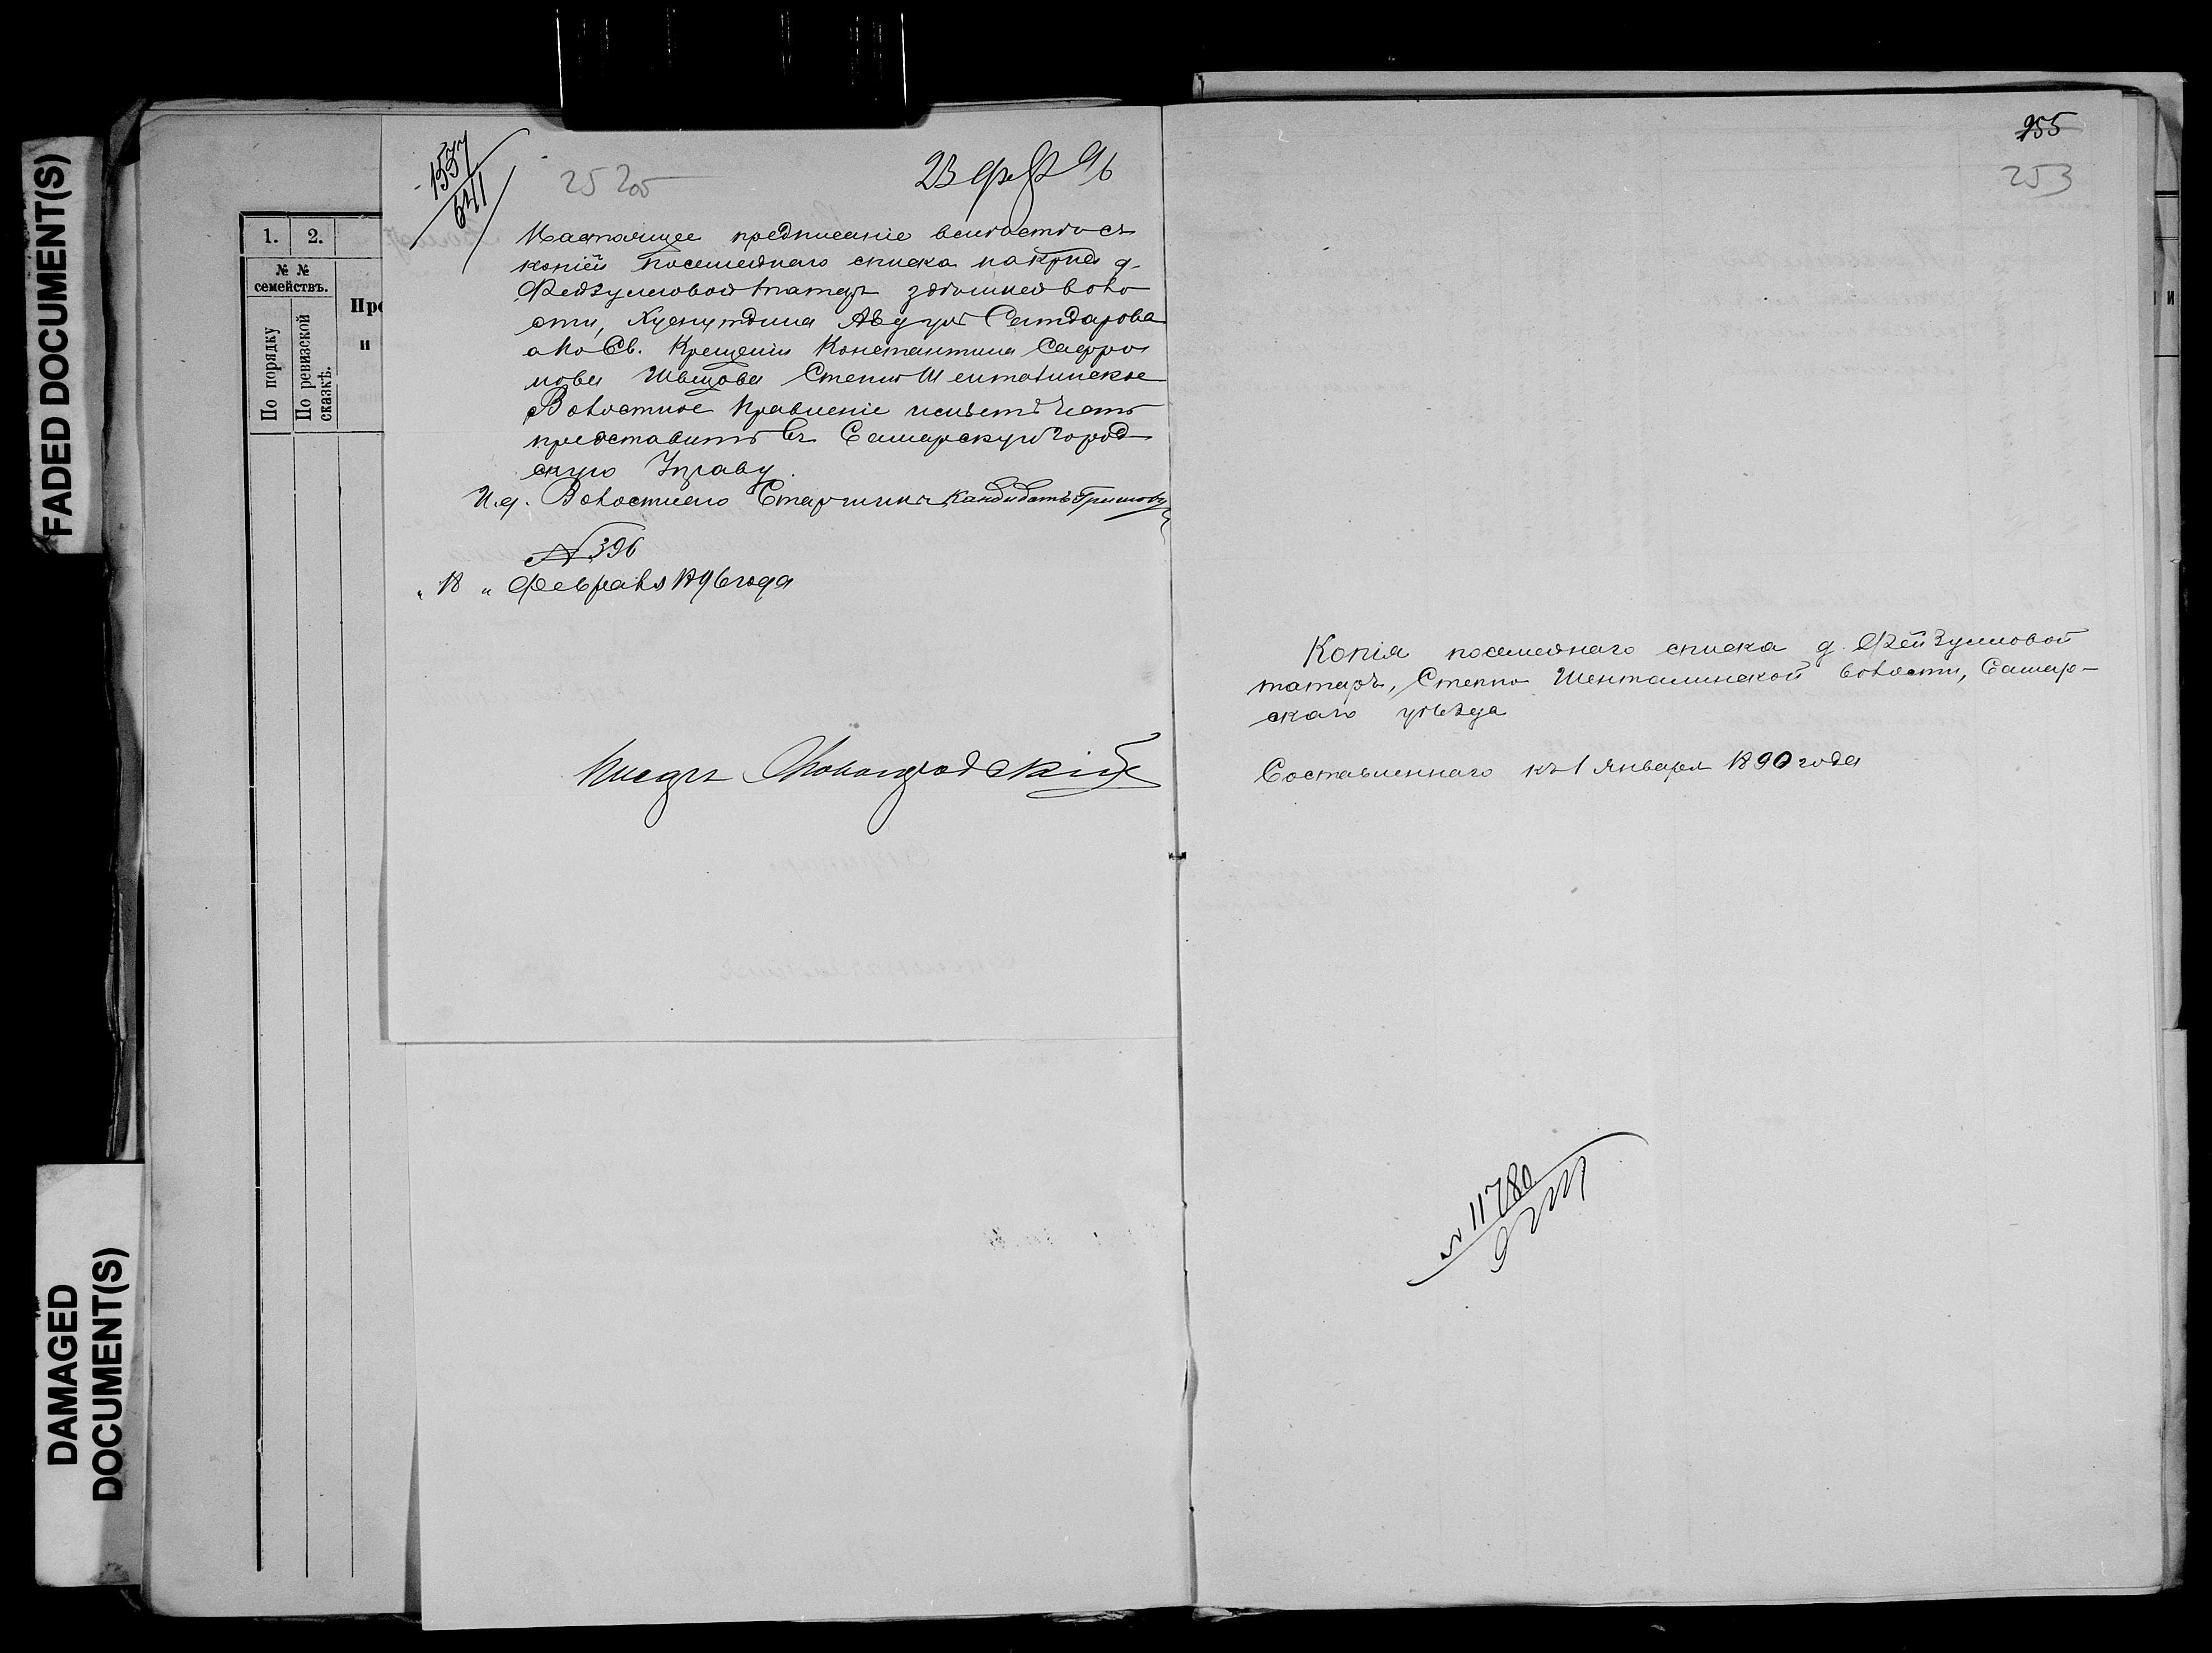 FADED DOCUMENT(S)
DAMAGED
DOCUMENT(S)
1. 2.
№ №
семействъ.
По порядку
По ревизской
сказкѣ.
Пр
и
1537
641
25 205
23 фев 96
Настоящее предписаніе вмѣстѣ съ
копіей посемейнаго списка на кр-на д.
Фейзулловой татаръ здѣшней воло
сти,
а по Св. Крещеніи Константина Сафро
нова Швецова Степно Шенталинское
Волостное Правленіе имѣетъ честь
представить въ Самарскую Город
скую Управу.
И.д. Волостного Старшины Кандидатъ
№ 396
" 18 " Февраля 1896 года
Писарь
255
253
Копія посемейнаго списка д. Фейзулловой
татаръ, Степно Шенталинской волости, Самар-
скаго уѣзда
Составленнаго къ 1 Января 1890 года
№ 11780